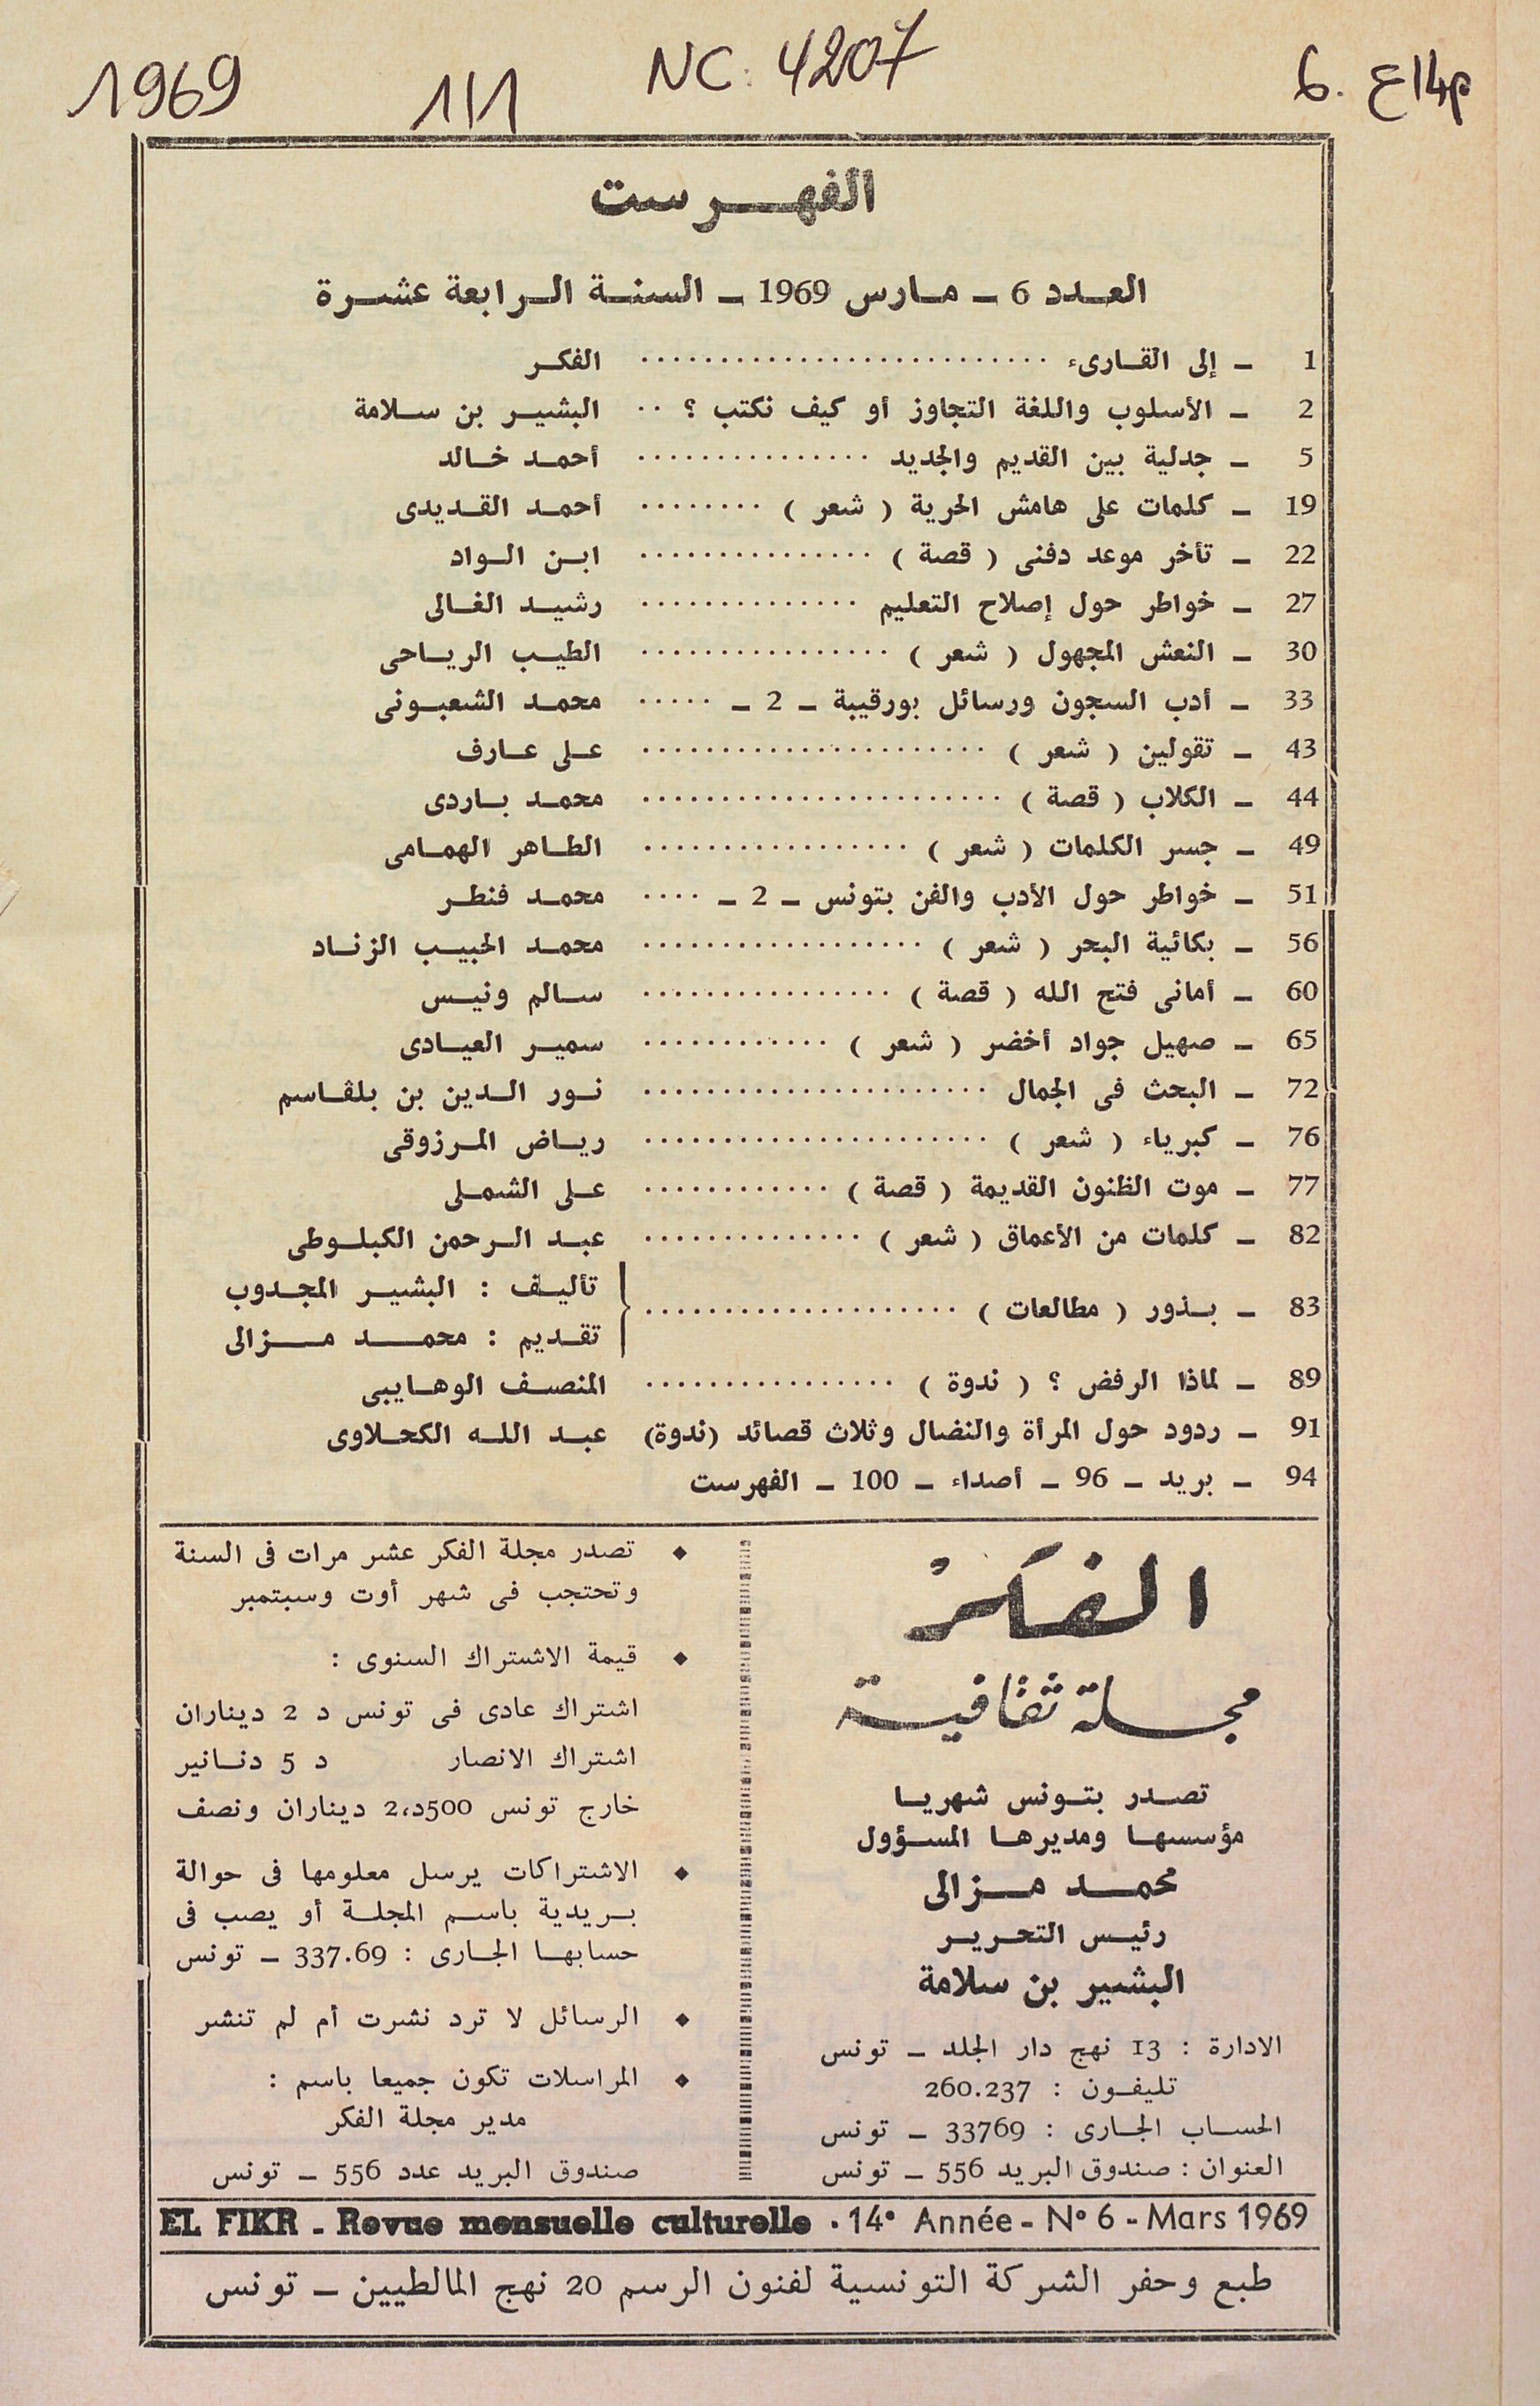 1969 1/1 NC: 4207 6. ع14م
الفهرست
العدد 6 ـ مارس 1969 ـ السنة الرابعة عشرة
1 ـ إلى القارىء .......................... الفكر
2 ـ الأسلوب واللغة التجاوز أو كيف نكتب ؟ .. البشير بن سلامة
5 ـ جدلية بين القديم والجديد ............... أحمد خالد
19 ـ كلمات على هامش الحرية ( شعر ) ........ أحمد القديدى
22 ـ تأخر موعد دفنى ( قصة ) ............... ابن الواد
27 ـ خواطر حول إصلاح التعليم .............. رشيد الغالى
30 ـ النعش المجهول ( شعر ) ................ الطيب الرياحى
33 ـ أدب السجون ورسائل بورقيبة ـ 2 ـ ..... محمد الشعبونى
43 ـ تقولين ( شعر ) ...................... على عارف
44 ـ الكلاب ( قصة ) ....................... محمد باردى
49 ـ جسر الكلمات ( شعر ) ................. الطاهر الهمامى
51 ـ خواطر حول الأدب والفن بتونس ـ 2 ـ .... محمد فنطر
56 ـ بكائية البحر ( شعر ) .................. محمد الحبيب الزناد
60 ـ أمانى فتح الله ( قصة ) ................ سالم ونيس
65 ـ صهيل جواد أخضر ( شعر ) ............ سمير العيادى
72 ـ البحث فى الجمال ...................... نور الدين بن بلقاسم
76 ـ كبرياء ( شعر ) ...................... رياض المرزوقى
77 ـ موت الظنون القديمة ( قصة ) ............ على الشملى
82 ـ كلمات من الأعماق ( شعر ) .............. عبد الرحمن الكبلوطى
83 ـ بذور ( مطالعات ) .................... تأليف : البشير المجدوب
تقديم : محمد مزالى
89 ـ لماذا الرفض ؟ ( ندوة ) ................ المنصف الوهايبى
91 ـ ردود حول المرأة والنضال وثلاث قصائد (ندوة) عبد الله الكحلاوى
94 ـ بريد ـ 96 ـ أصداء ـ 100 ـ الفهرست
الفكر
مجلة ثقافية
تصدر بتونس شهريا
مؤسسها ومديرها المسؤول
محمد مزالى
رئيس التحرير
البشير بن سلامة
الادارة : 13 نهج دار الجلد ـ تونس
تليفون : 260.237
الحساب الجارى : 33769 ـ تونس
العنوان : صندوق البريد 556 ـ تونس
◆ تصدر مجلة الفكر عشر مرات فى السنة
وتحتجب فى شهر أوت وسبتمبر
◆ قيمة الاشتراك السنوى :
اشتراك عادى فى تونس د 2 ديناران
اشتراك الانصار د 5 دنانير
خارج تونس 500د،2 ديناران ونصف
◆ الاشتراكات يرسل معلومها فى حوالة
بريدية باسم المجلة أو يصب فى
حسابها الجارى : 337.69 ـ تونس
◆ الرسائل لا ترد نشرت أم لم تنشر
◆ المراسلات تكون جميعا باسم :
مدير مجلة الفكر
صندوق البريد عدد 556 ـ تونس
EL FIKR - Revue mensuelle culturelle . 14e Année - N° 6 - Mars 1969
طبع وحفر الشركة التونسية لفنون الرسم 20 نهج المالطيين ـ تونس